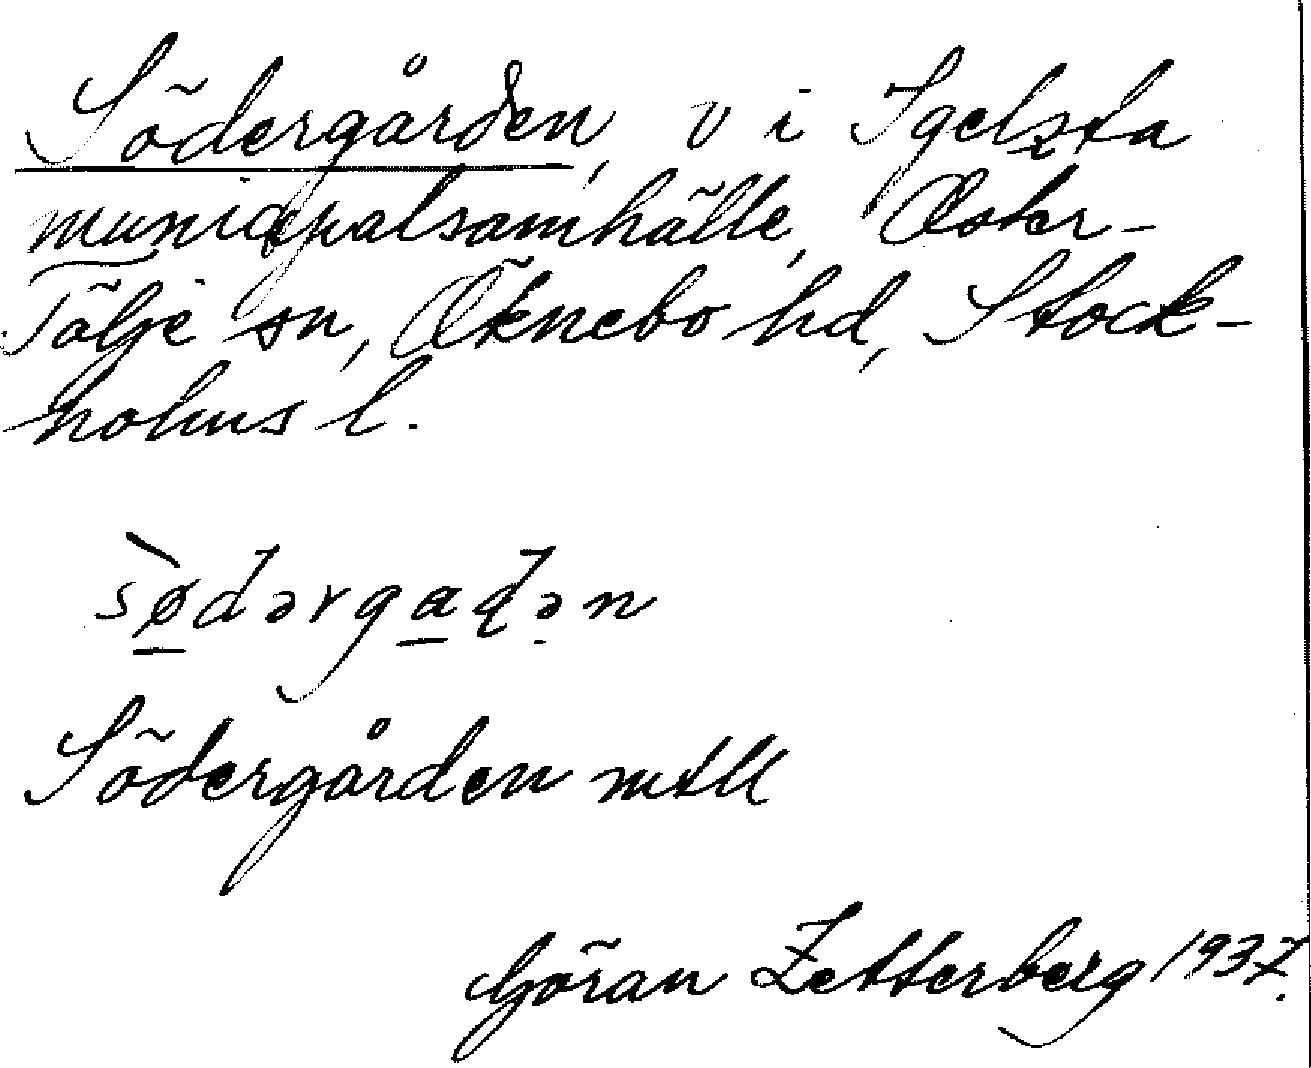 Södergården, v i Igelsta
municipalsamhälle, Öster-
Tälje sn, Öknebo hd, Stock-
holms l.
sø̀dərgadən
Södergården mtll
Göran Zetterberg 1937.